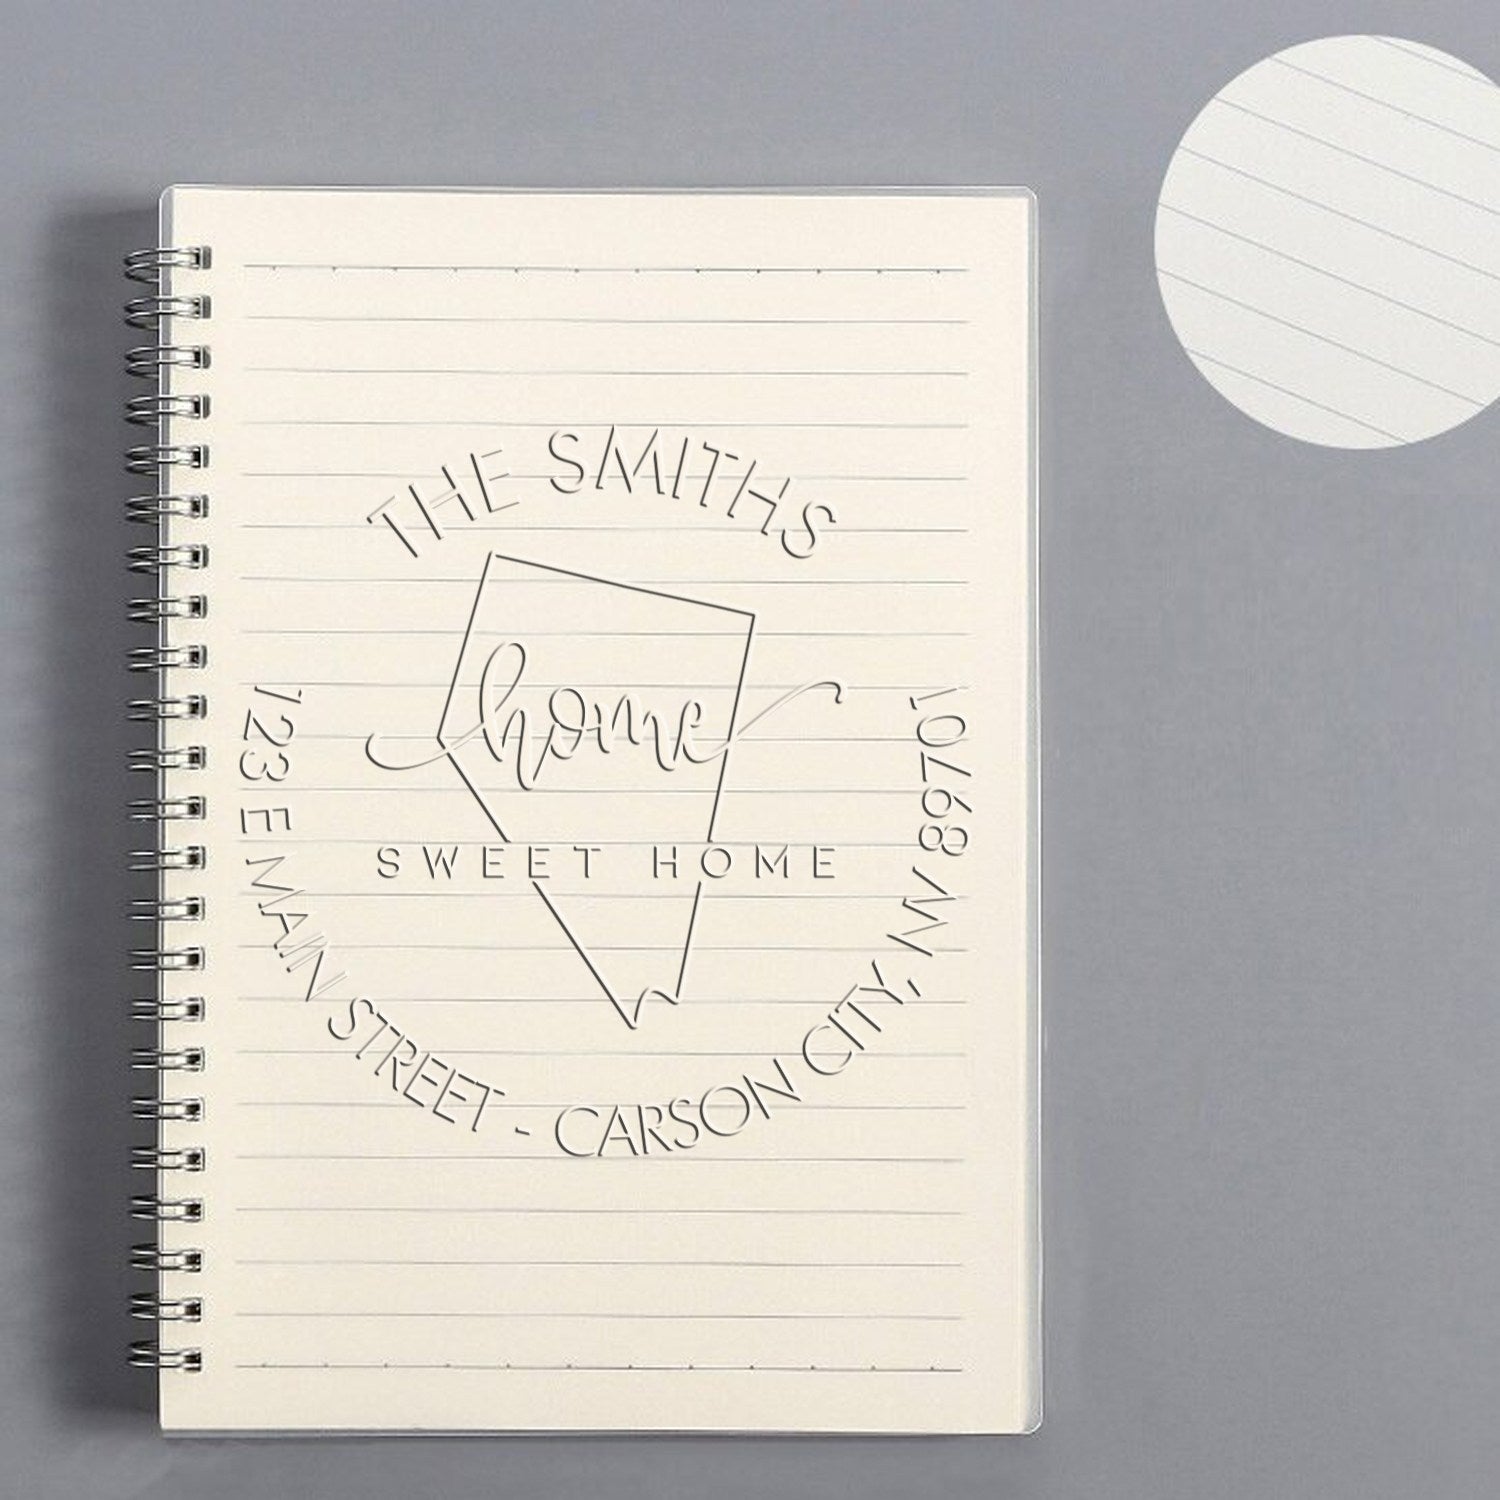 THE SMITHS
home
SWEET HOME
123 E MAIN STREET - CARSON CITY, NV 89701